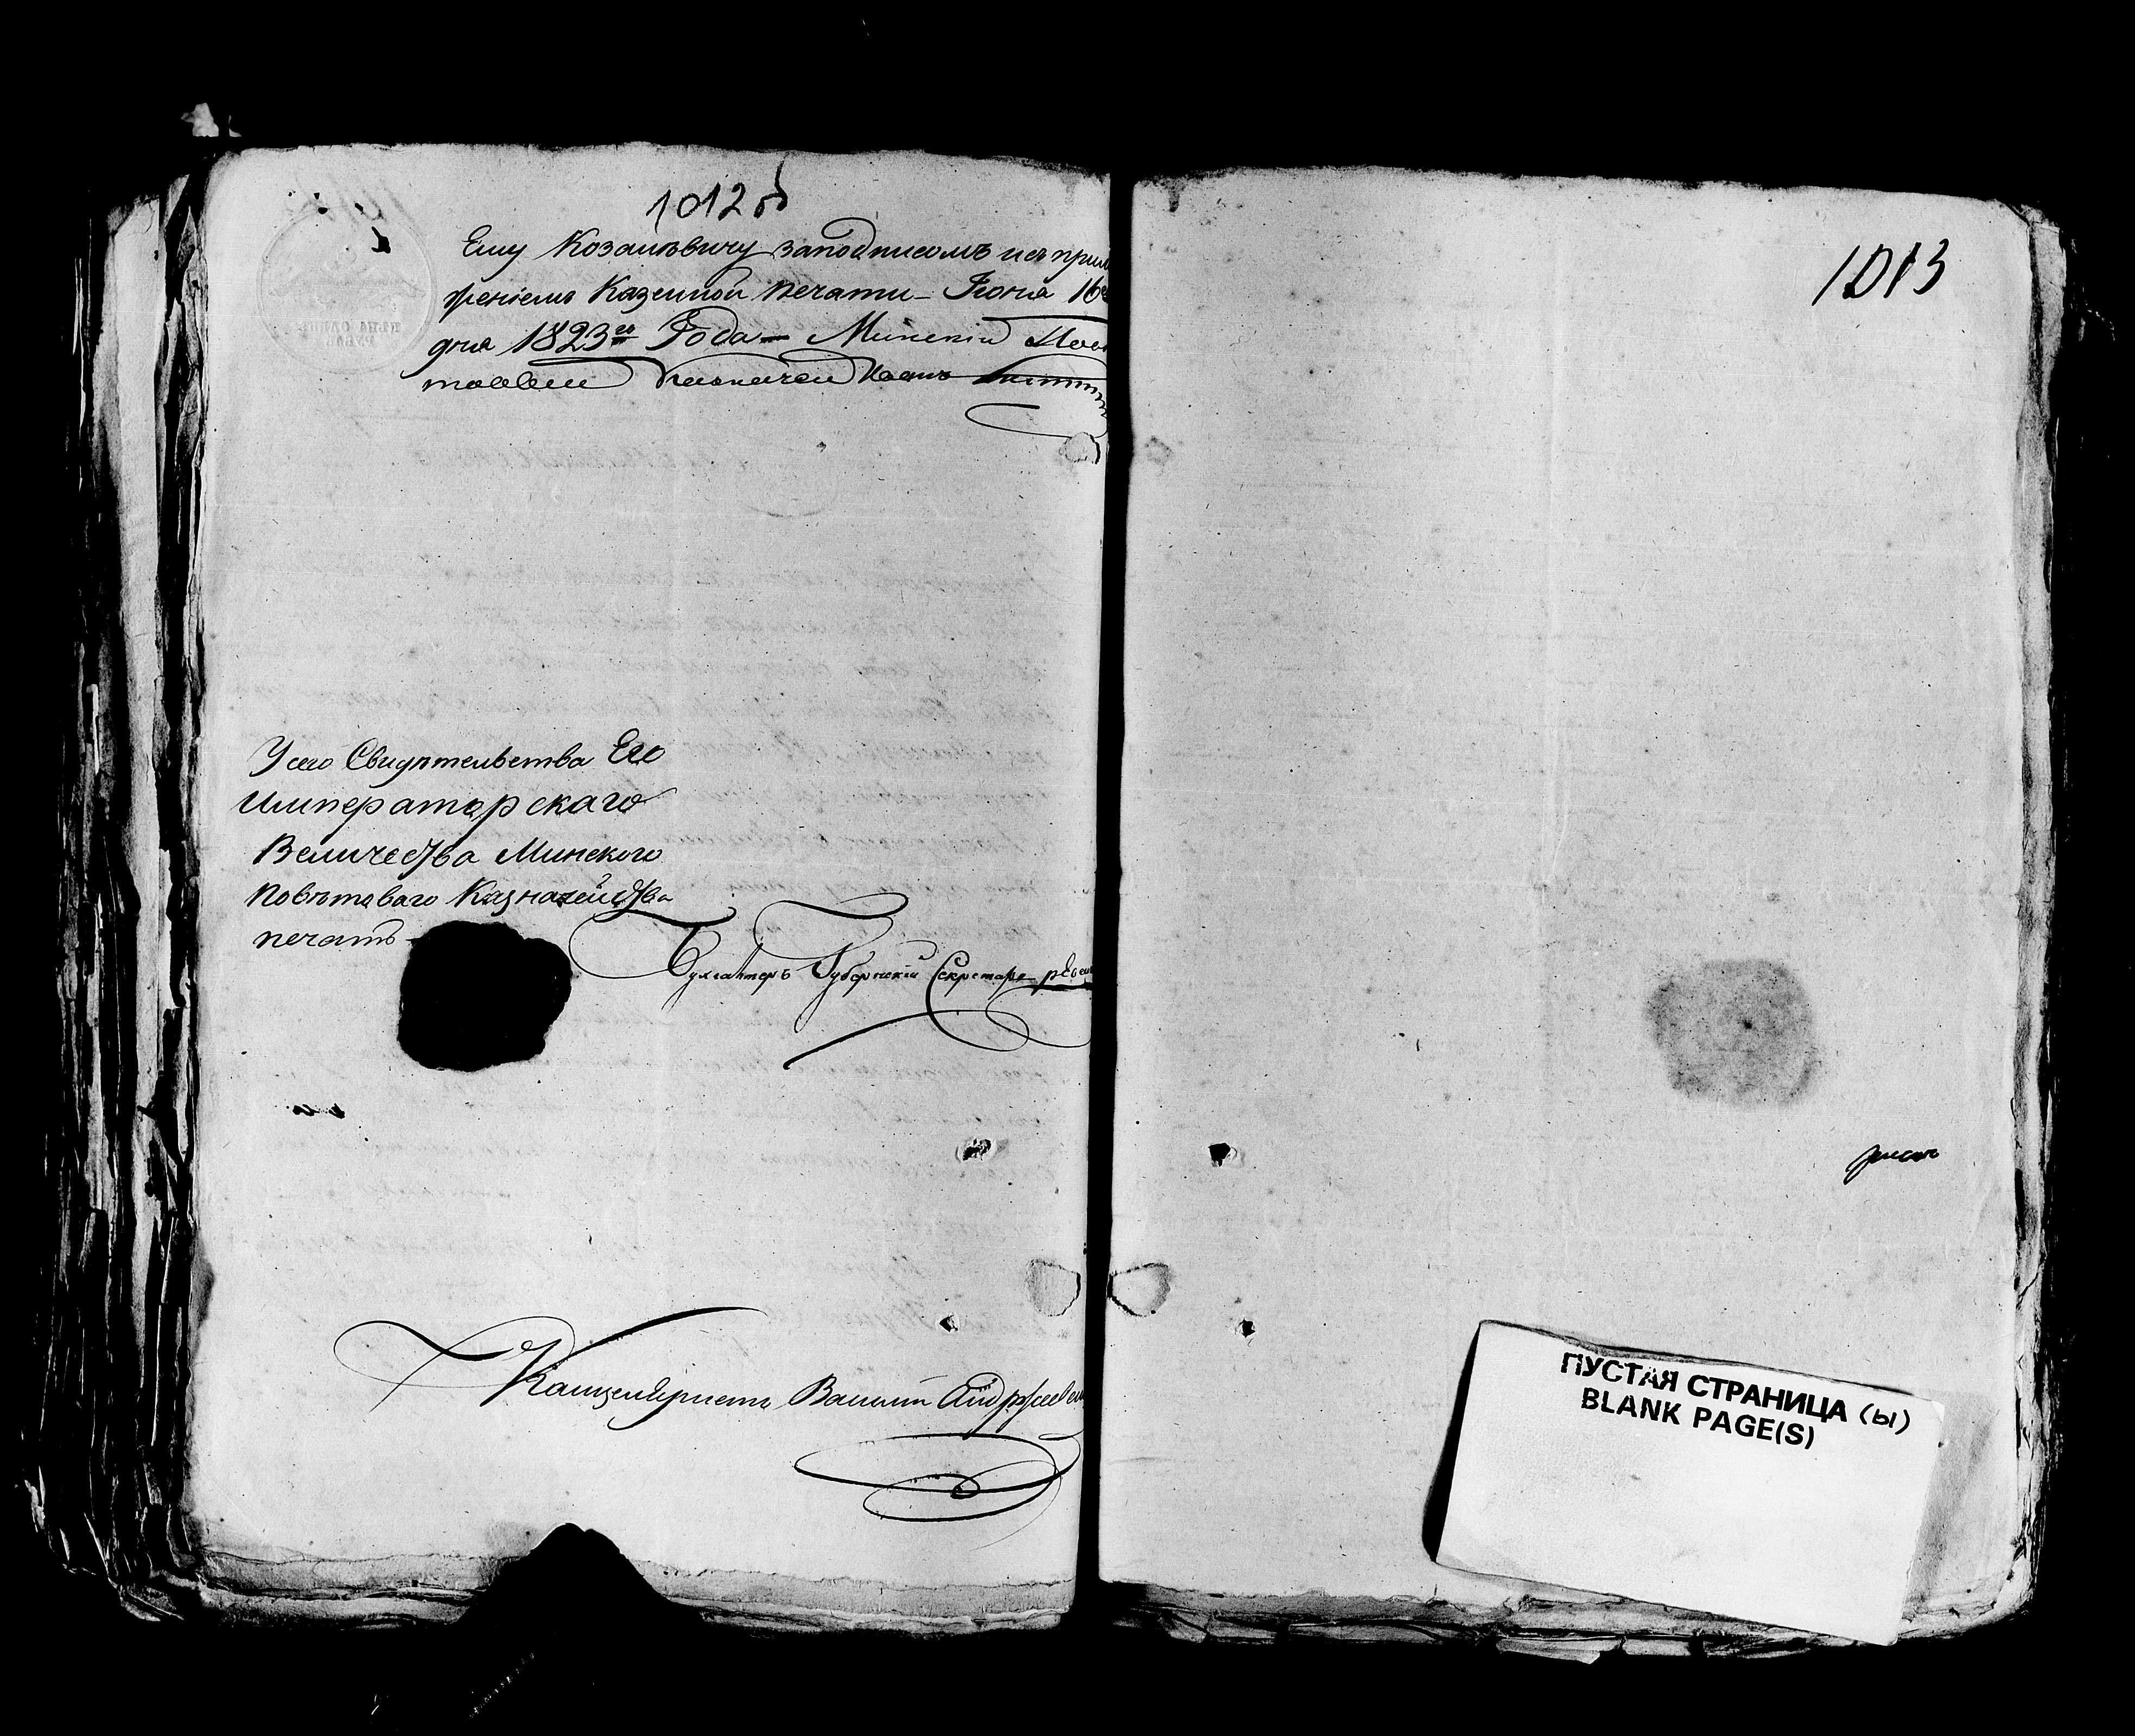 1012об
Ему Козаковичу заподписомъ и съ прил
женіемъ Казенной печати – Іюня 16го
дня 1823го Года – Минскій
Казначей Иванъ
У сего Свидѣтельства Его
Императорскаго
Величества Минского
Повѣтоваго Казначейства
печать
Бухгалтеръ Губернскій Секретарь
Канцеляристъ
1013
ПУСТАЯ СТРАНИЦА (ы)
BLANK PAGE(S)